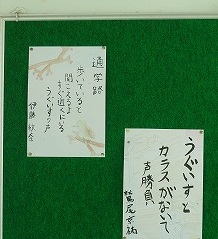 通学路
歩いていると
聞こえるよ
すぐ近くにいる
うぐいすの声
伊藤
うぐいすと
カラスがないて
声勝負
鷲尾